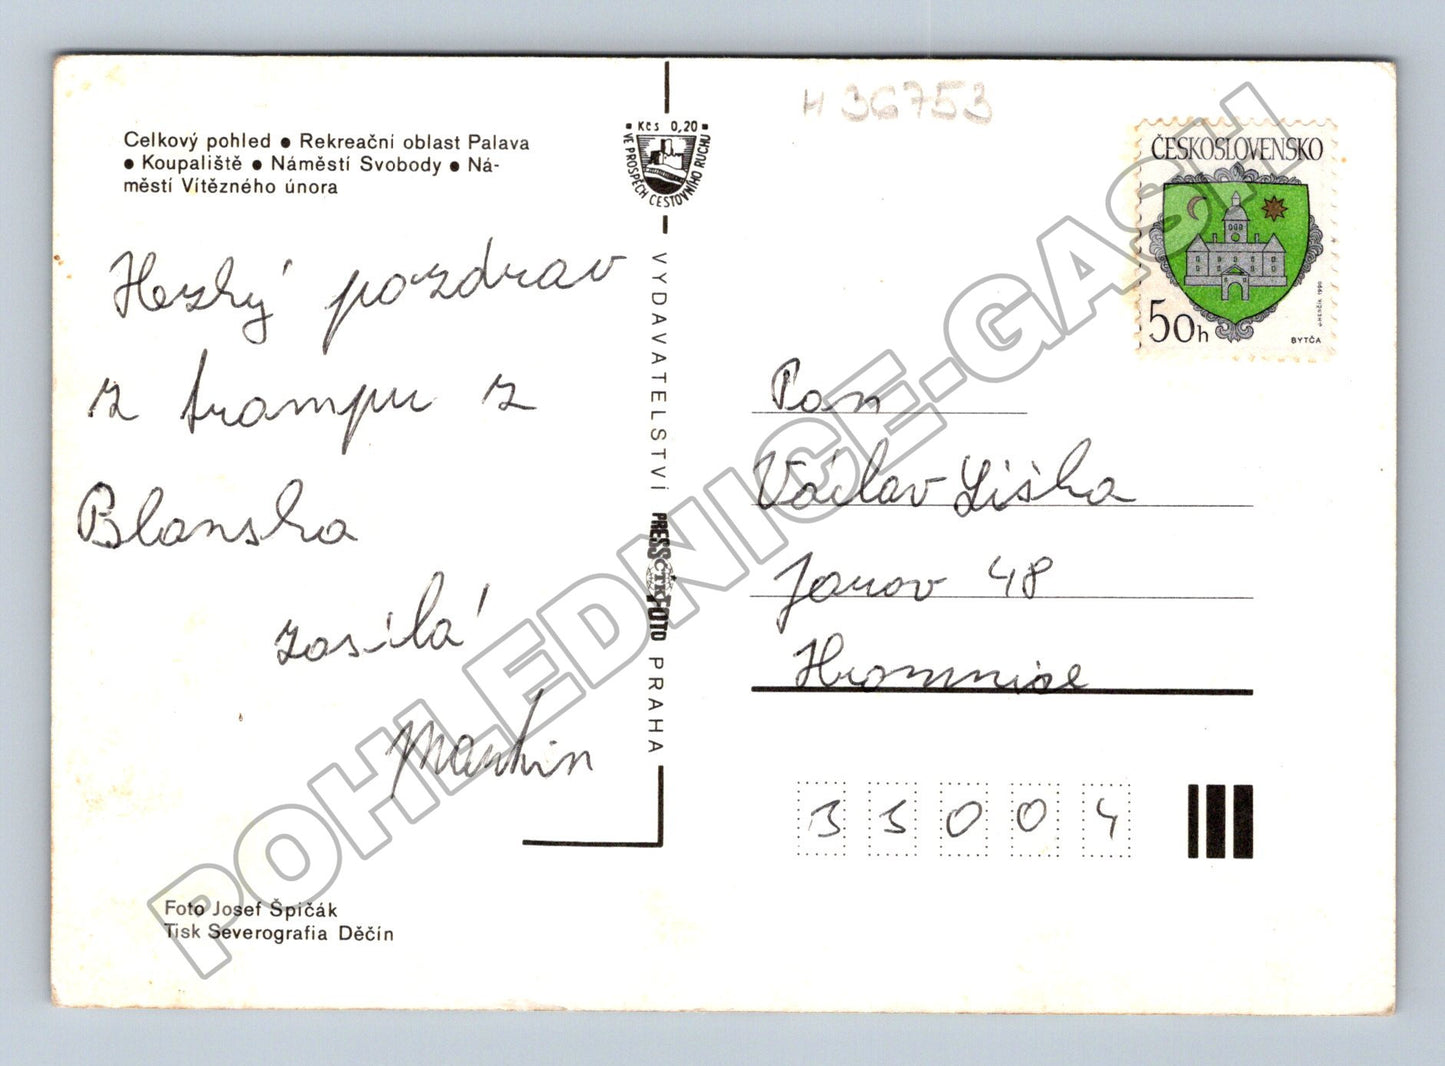 H 36753
Celkový pohled ● Rekreační oblast Palava
● Koupaliště ● Náměstí Svobody ● Ná-
městí Vítězného února
Kčs 0,20
VE PROSPĚCH CESTOVNÍHO RUCHU
ČESKOSLOVENSKO
50h
BYTČA
1990
Hezký pozdrav
z trampu z
Blanska
zasílá
Martin
VYDAVATELSTVÍ PRESSFOTO PRAHA
ČTK
Pan
Václav Liška
Janov 48
Hromnice
33004
Foto Josef Špičák
Tisk Severografia Děčín
POHLEDNICE-GASH